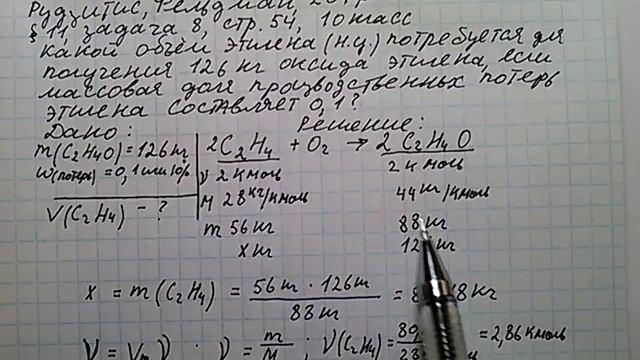 Рудзитис, Фельдман
§ 11, задача 8, стр. 54, 10 класс
Какой объём этилена (н.у.) потребуется для
получения 126 кг оксида этилена, если
массовая доля производственных потерь
этилена составляет 0,1?
Дано: Решение:
m(C2H4O) = 126 кг 2C2H4 + O2 → 2C2H4O
w(потерь) = 0,1 или 10% ν 2 кмоль 2 кмоль
V(C2H4) - ? M 28 кг/кмоль 44 кг/кмоль
m 56 кг 88 кг
x кг 12 кг
x = m(C2H4) = 56 кг · 126 кг / 88 кг = 8 8 кг
V = Vm ν ; ν = m/M ; ν(C2H4) = = 2,86 кмоль